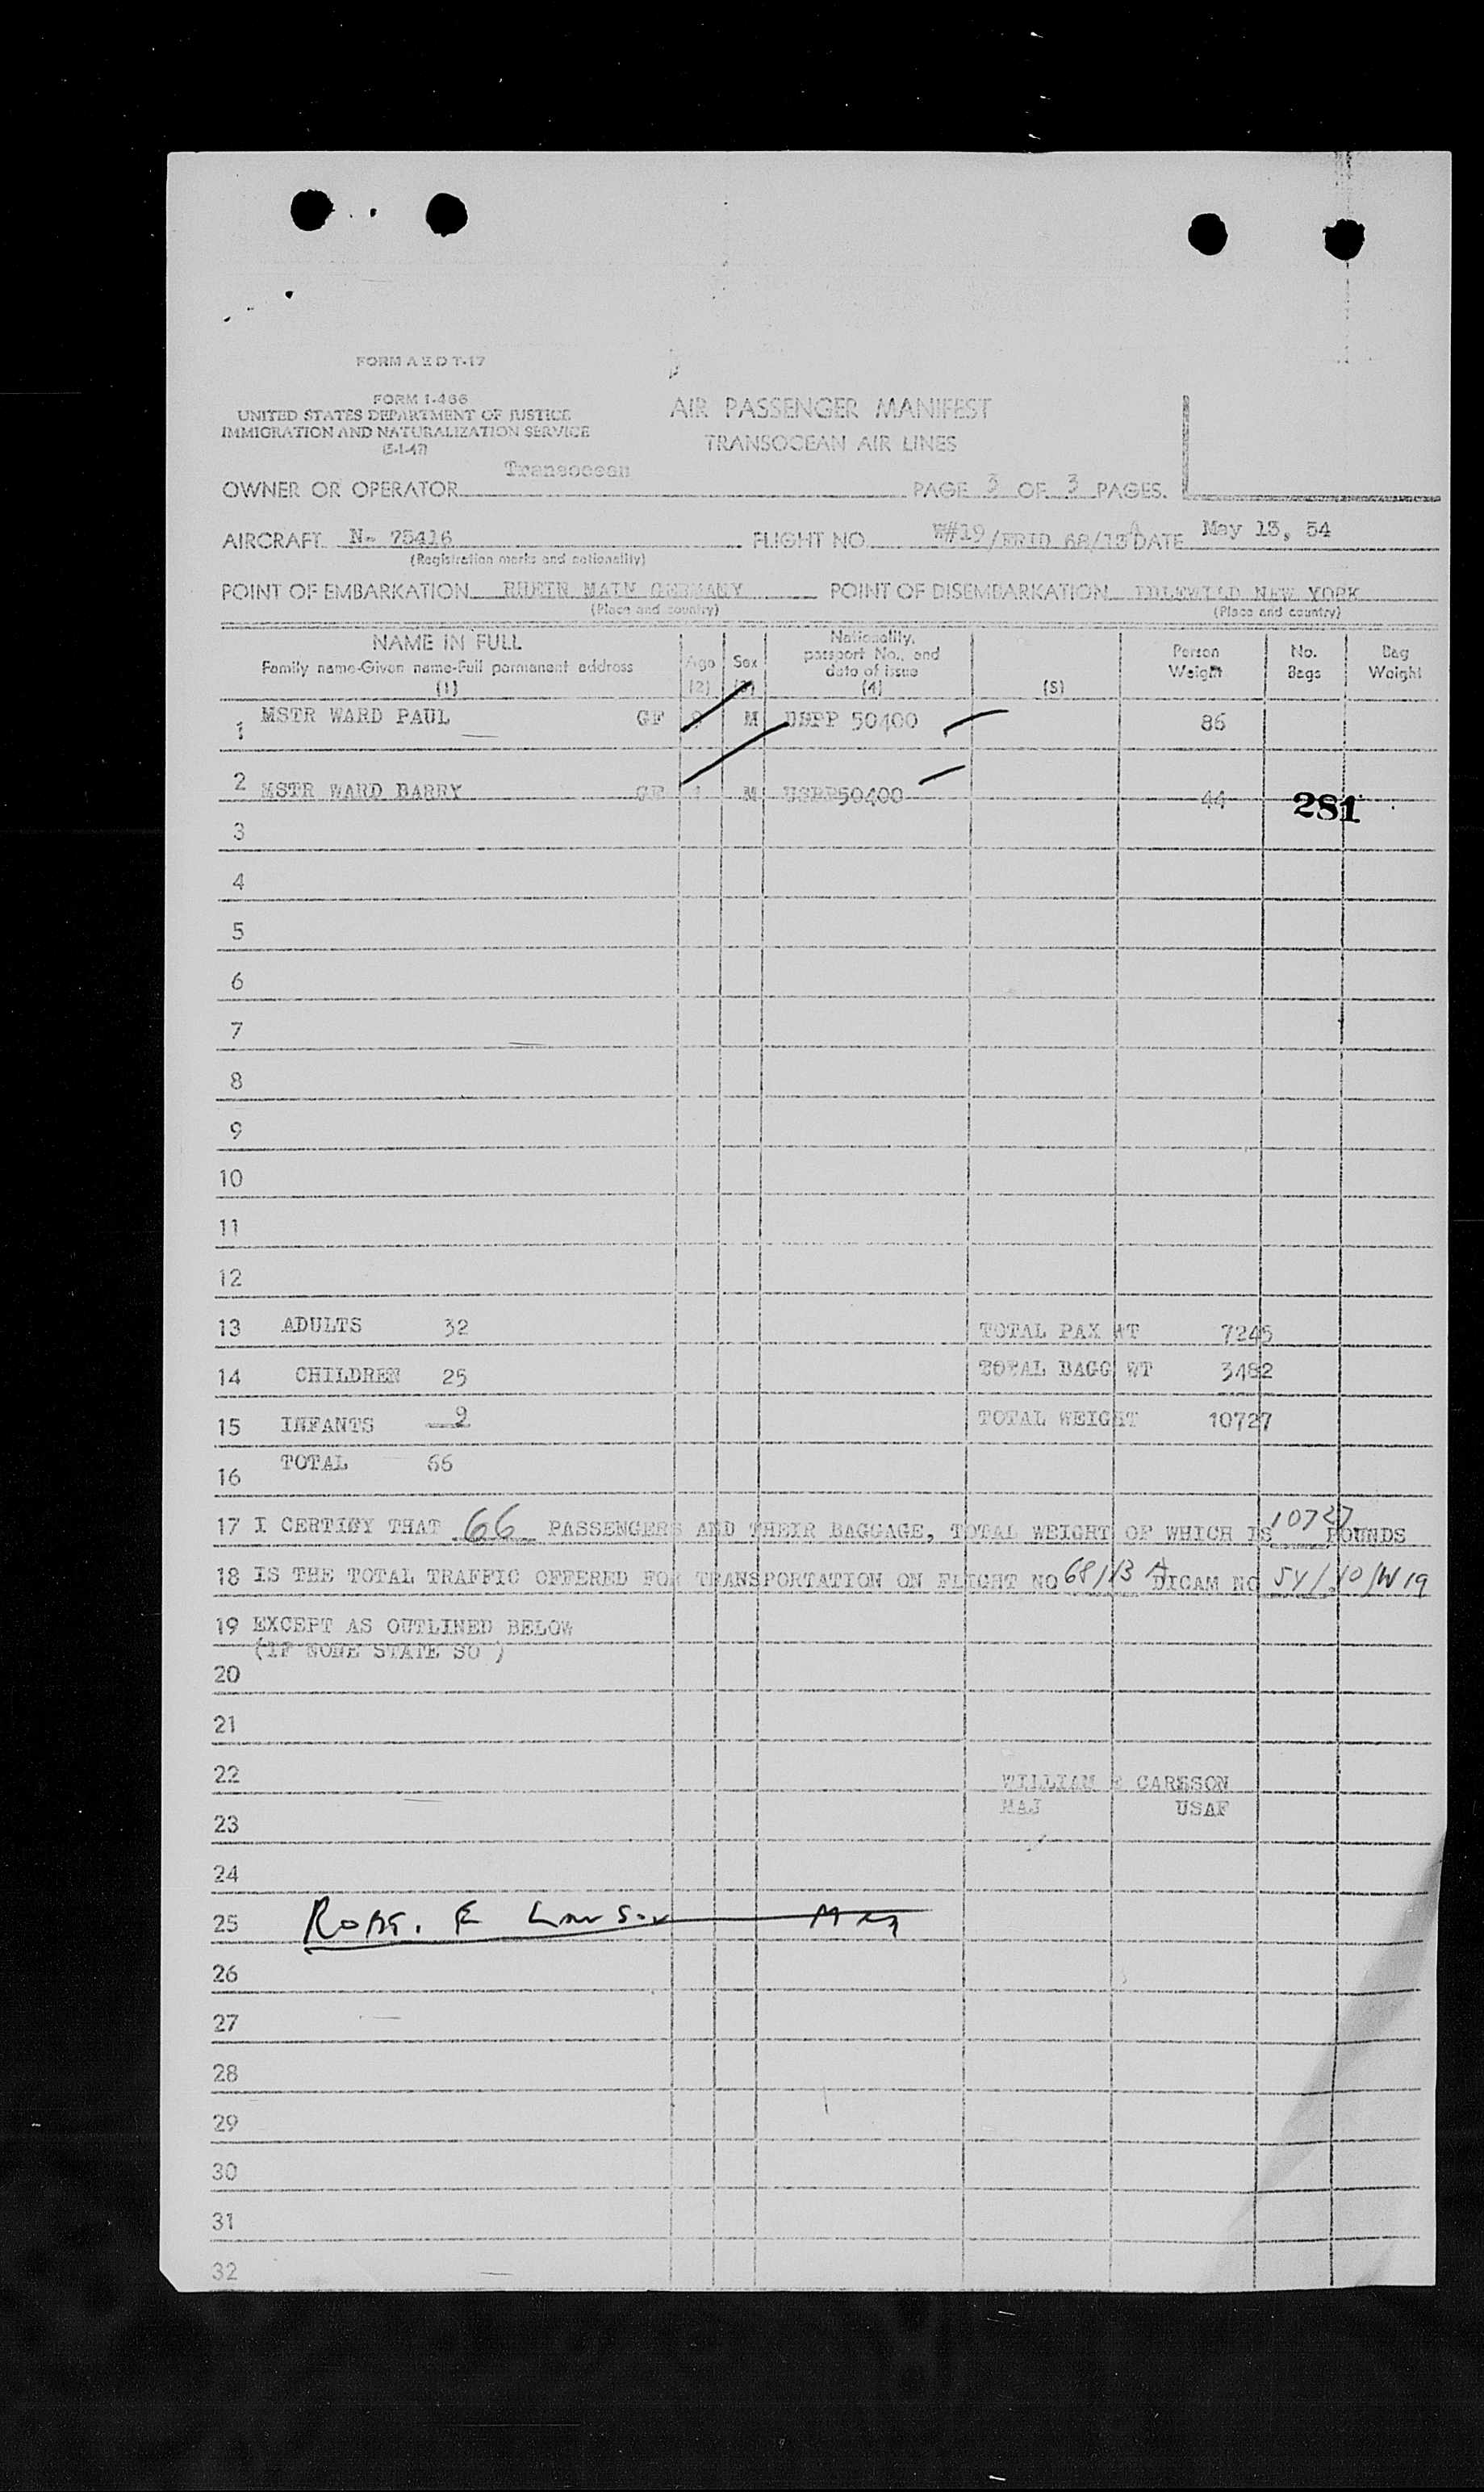 FORM A E D T-17
FORM I-466
UNITED STATES DEPARTMENT OF JUSTICE
IMMIGRATION AND NATURALIZATION SERVICE
(5-1-47)
AIR PASSENGER MANIFEST
TRANSOCEAN AIR LINES
OWNER OR OPERATOR Transocean PAGE 3 OF 3 PAGES.
AIRCRAFT N- 75416 FLIGHT NO. W#19/ 68/13 A DATE May 13, 54
(Registration marks and nationality)
POINT OF EMBARKATION RHEIN MAIN GERMANY POINT OF DISEMBARKATION IDLEWILD NEW YORK
(Place and country) (Place and country)
NAME IN FULL
Family name-Given name-Full permanent address
(1)
Age
(2)
Sex
(3)
Nationality,
passport No., and
date of issue
(4)
(5)
Person
Weight
No.
Bags
Bag
Weight
1 MSTR WARD PAUL GF M USPP 50400 86
2 MSTR WARD BARRY GF M USPP50400 44
281
3
4
5
6
7
8
9
10
11
12
13 ADULTS 32 TOTAL PAX WT 7245
14 CHILDREN 25 TOTAL BAGG WT 3482
15 INFANTS 9 TOTAL WEIGHT 10727
16 TOTAL 66
17 I CERTIFY THAT 66 PASSENGERS AND THEIR BAGGAGE, TOTAL WEIGHT OF WHICH IS 10727 POUNDS
18 IS THE TOTAL TRAFFIC OFFERED FOR TRANSPORTATION ON FLIGHT NO 68/13 A DICAM NO 54/10/W19
19 EXCEPT AS OUTLINED BELOW
(IF NONE STATE SO )
20
21
22 WILLIAM CARLSON
23 MAJ USAF
24
25 ROBT. E
26
27
28
29
30
31
32